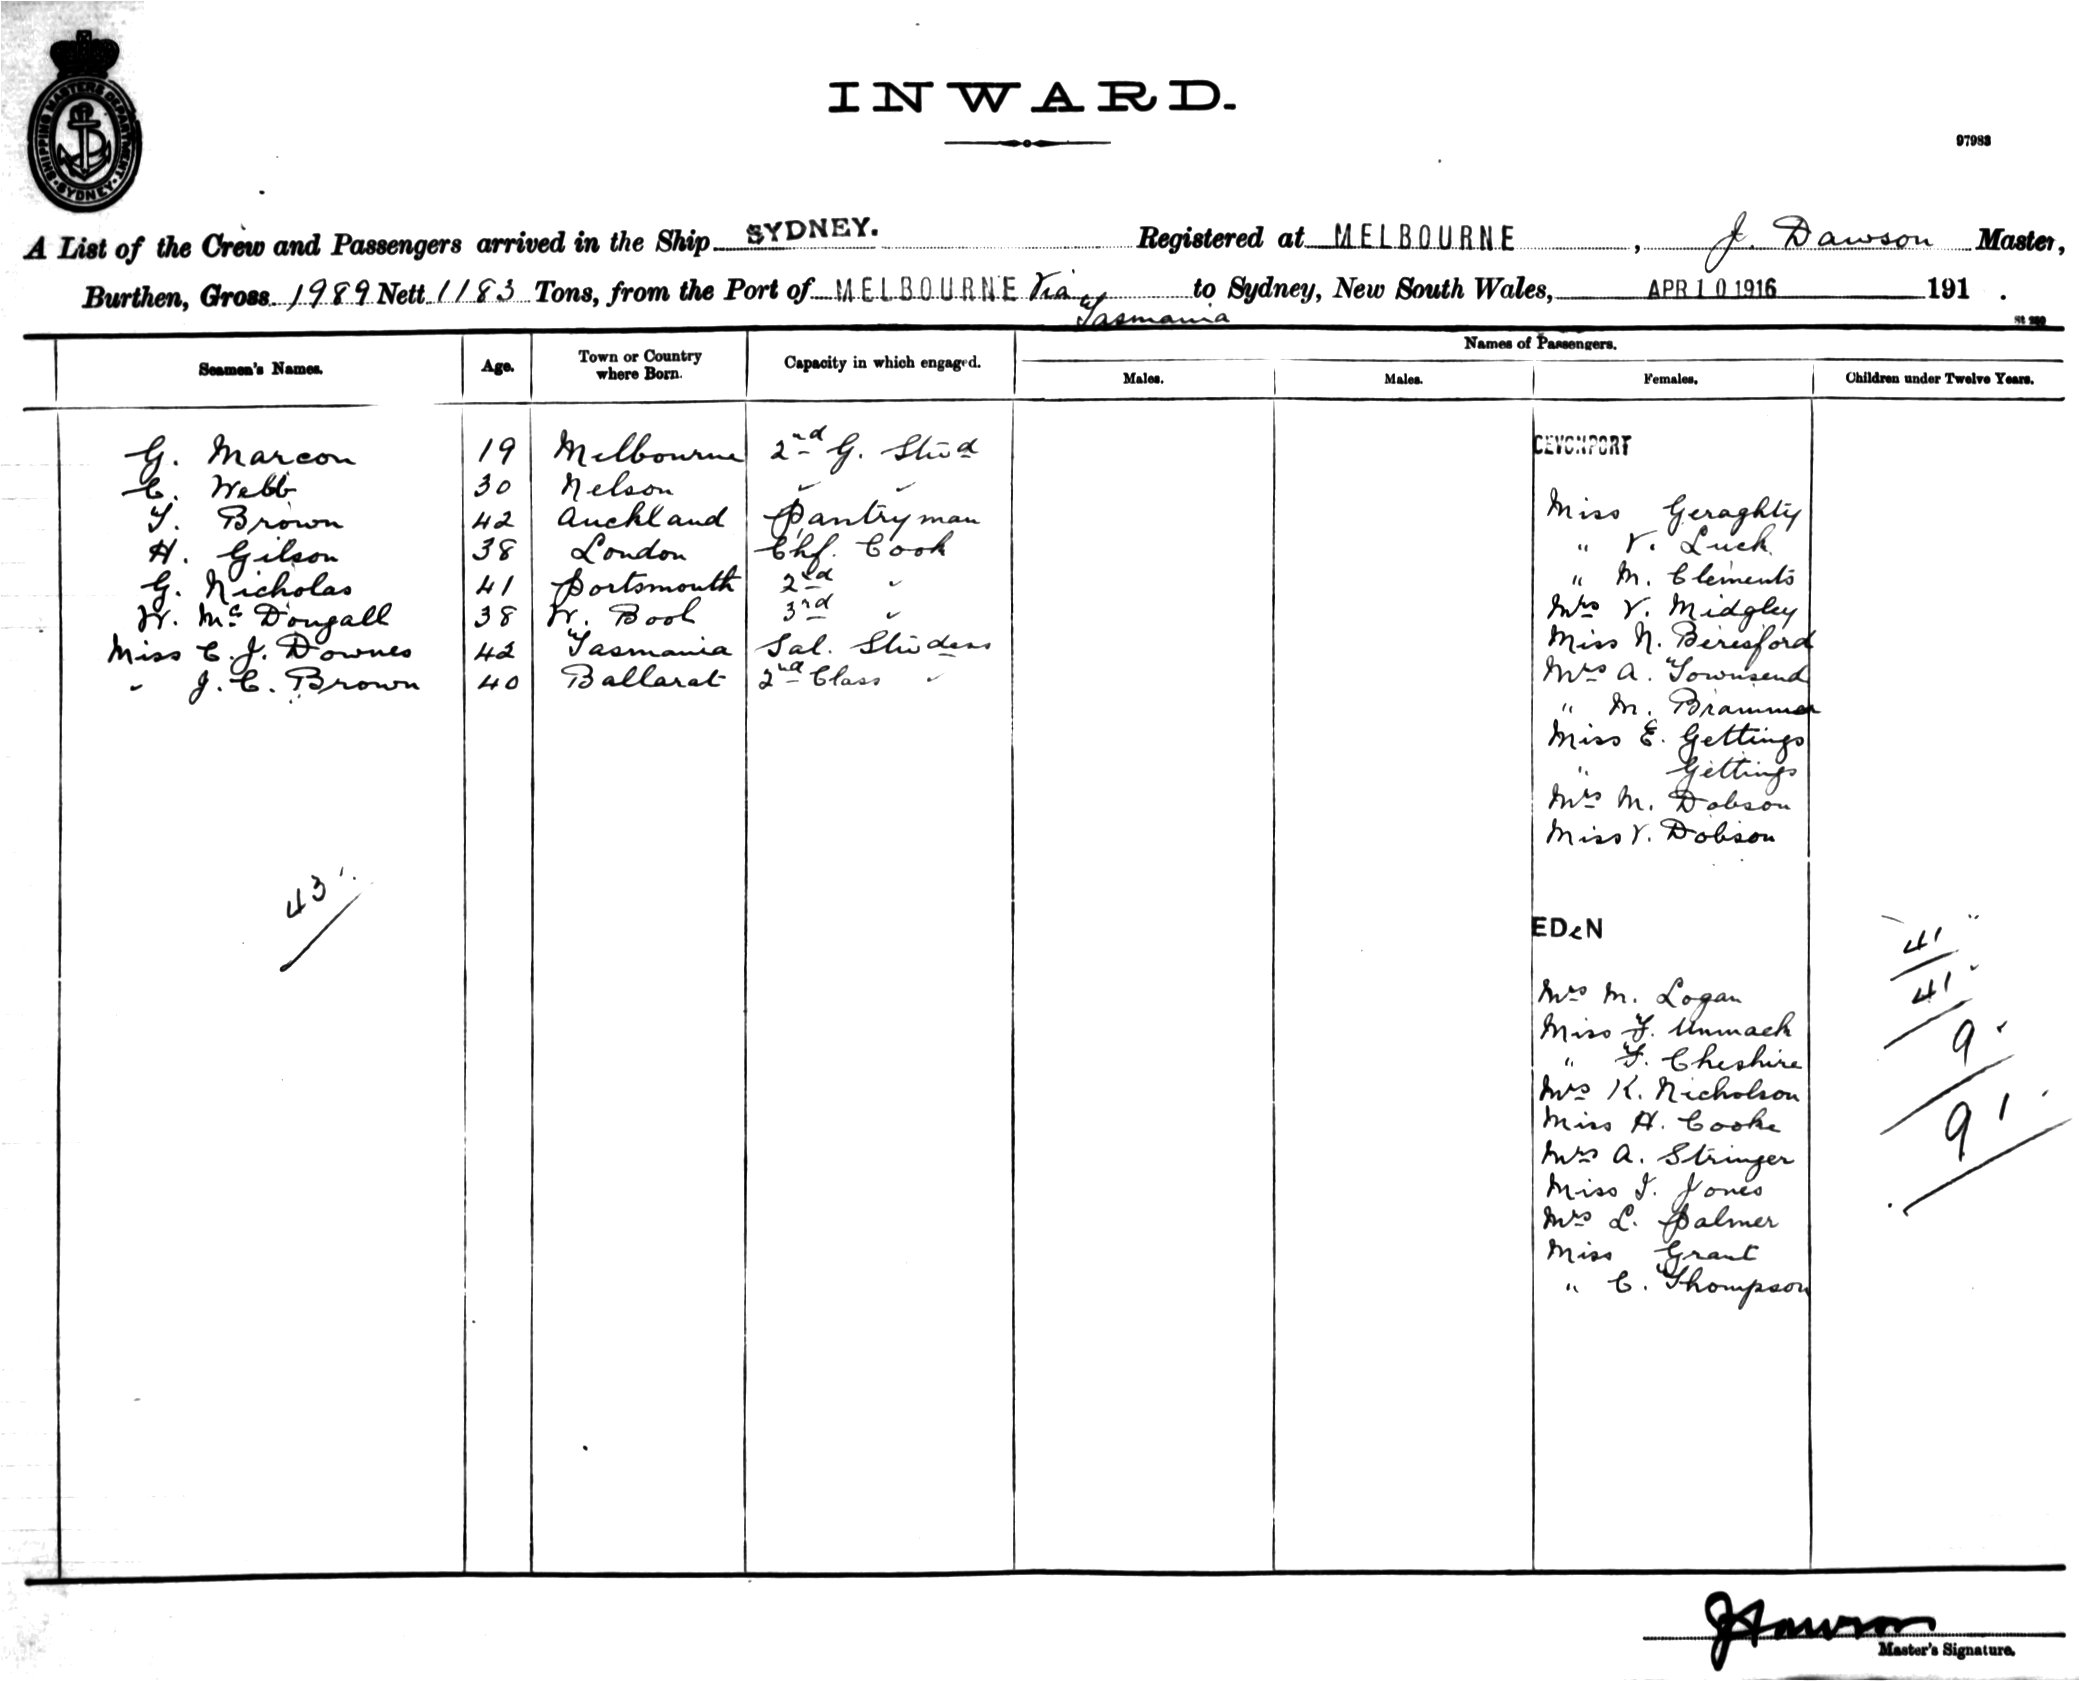 SHIPPING MASTERS DEPARTMENT SYDNEY
INWARD.
97983
A List of the Crew and Passengers arrived in the Ship SYDNEY. Registered at MELBOURNE, J. Dawson Master,
Burthen, Gross 1989 Nett 1183 Tons, from the Port of MELBOURNE Via Tasmania to Sydney, New South Wales, APR 10 1916 191 .
Names of Passengers.
Seamen's Names. Age. Town or Country where Born. Capacity in which engaged. Males. Males. Females. Children under Twelve Years.
G. Marcon 19 Melbourne 2nd G. Stwd
C. Webb 30 Nelson " "
T. Brown 42 Auckland Pantryman
H. Gilson 38 London Chf. Cook
G. Nicholas 41 Portsmouth 2nd "
W. McDougall 38 W. Bool 3rd "
Miss C. J. Downes 42 Tasmania Sal. Stwdess
" J. C. Brown 40 Ballarat 2nd Class "
43
DEVONPORT
Miss Geraghty
" V. Luck
" M. Clements
Mrs V. Midgley
Miss N. Beresford
Mrs A. Townsend
" M. Brammer
Miss E. Gettings
" Gettings
Mrs M. Dobson
Miss V. Dobson
EDeN
Mrs M. Logan
Miss F. Unmack
" F. Cheshire
Mrs K. Nicholson
Miss H. Cooke
Mrs A. Stringer
Miss I. Jones
Mrs L. Palmer
Miss Grant
" C. Thompson
41
41
9
91
J Dawson
Master's Signature.